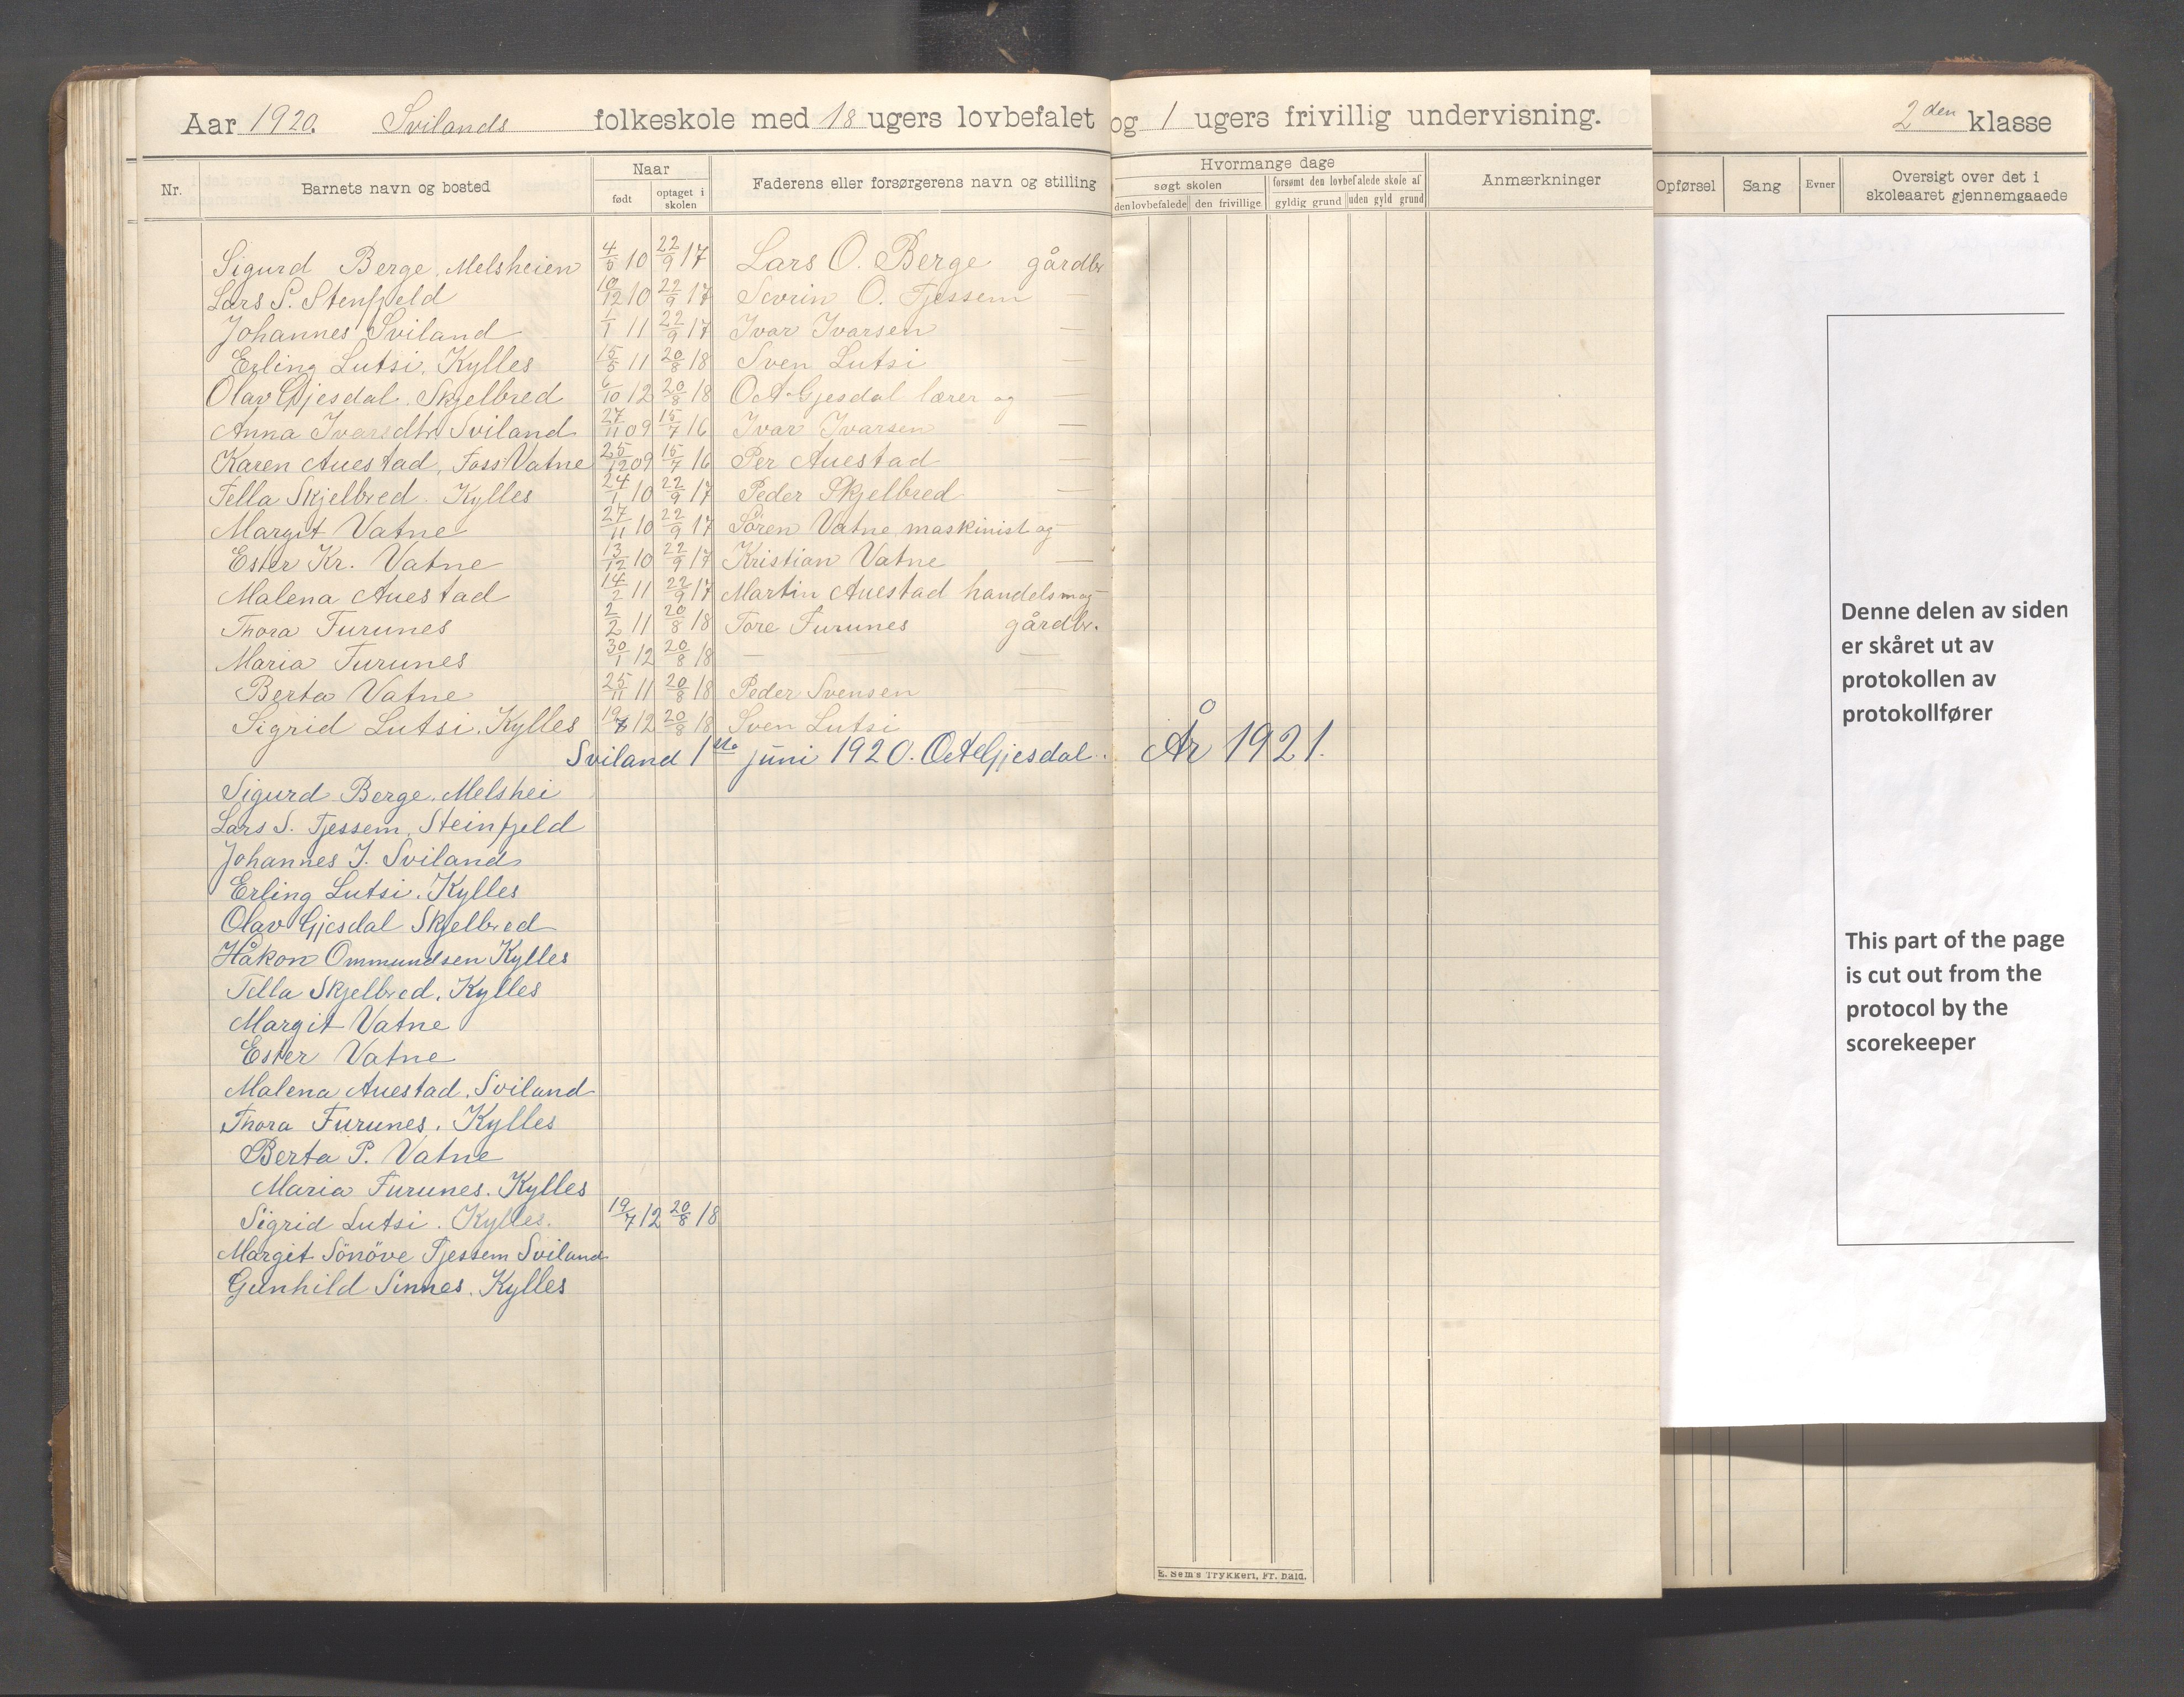 Aar 1920. Svilands folkeskole med 18 ugers lovbefalet og 1 ugers frivillig undervisning. 2den klasse
Nr. Barnets navn og bosted Naar født optaget i skolen Faderens eller forsørgerens navn og stilling Hvormange dage søgt skolen den lovbefalede den frivillige forsømt den lovbefalede skole af gyldig grund uden gyld grund Anmærkninger Opførsel Sang Evner Oversigt over det i skoleaaret gjennemgaaede
Sigurd Berge, Melsheien 4/5 10 22/9 17 Lars O. Berge gårdbr
Lars S. Stenfjeld 10/12 10 22/9 17 Sevrin O. Tjessem —
Johannes Sviland 1/1 11 22/9 17 Ivar Ivarsen —
Erling Lutsi, Kylles 15/5 11 20/8 18 Sven Lutsi —
Olav Gjesdal. Skjelbred 6/10 12 20/8 18 O A Gjesdal lærer og —
Anna Ivarsdtr Sviland 27/11 09 15/7 16 Ivar Ivarsen —
Karen Auestad, Foss Vatne 25/12 09 15/7 16 Per Auestad —
Tella Skjelbred. Kylles 24/1 10 22/9 17 Peder Skjelbred —
Margit Vatne 27/11 10 22/9 17 Sören Vatne, maskinist og —
Ester Kr. Vatne 13/12 10 22/9 17 Kristian Vatne —
Malena Auestad 14/2 11 22/9 17 Martin Auestad handelsm og —
Thora Furunes 2/2 11 20/8 18 Tore Furunes gårdbr.
Maria Furunes 30/1 12 20/8 18 — — —
Berta Vatne 25/11 11 20/8 18 Peder Svensen —
Sigrid Lutsi. Kylles 19/7 12 20/8 18 Sven Lutsi —
Sviland 1ste juni 1920. O A Gjesdal. År 1921.
Sigurd Berge. Melshei
Lars S. Tjessem, Steinfjeld
Johannes I. Sviland
Erling Lutsi. Kylles
Olav Gjesdal Skjelbred
Håkon Ommundsen Kylles
Tella Skjelbred. Kylles
Margit Vatne
Ester Vatne
Malena Auestad. Sviland
Thora Furunes. Kylles
Berta P. Vatne
Maria Furunes. Kylles
Sigrid Lutsi. Kylles. 19/7 12 20/8 18
Margit Sönöve Tjessem Sviland
Gunhild Sinnes. Kylles
E. Sem's Trykkeri, Fr.hald.
Denne delen av siden
er skåret ut av
protokollen av
protokollfører
This part of the page
is cut out from the
protocol by the
scorekeeper